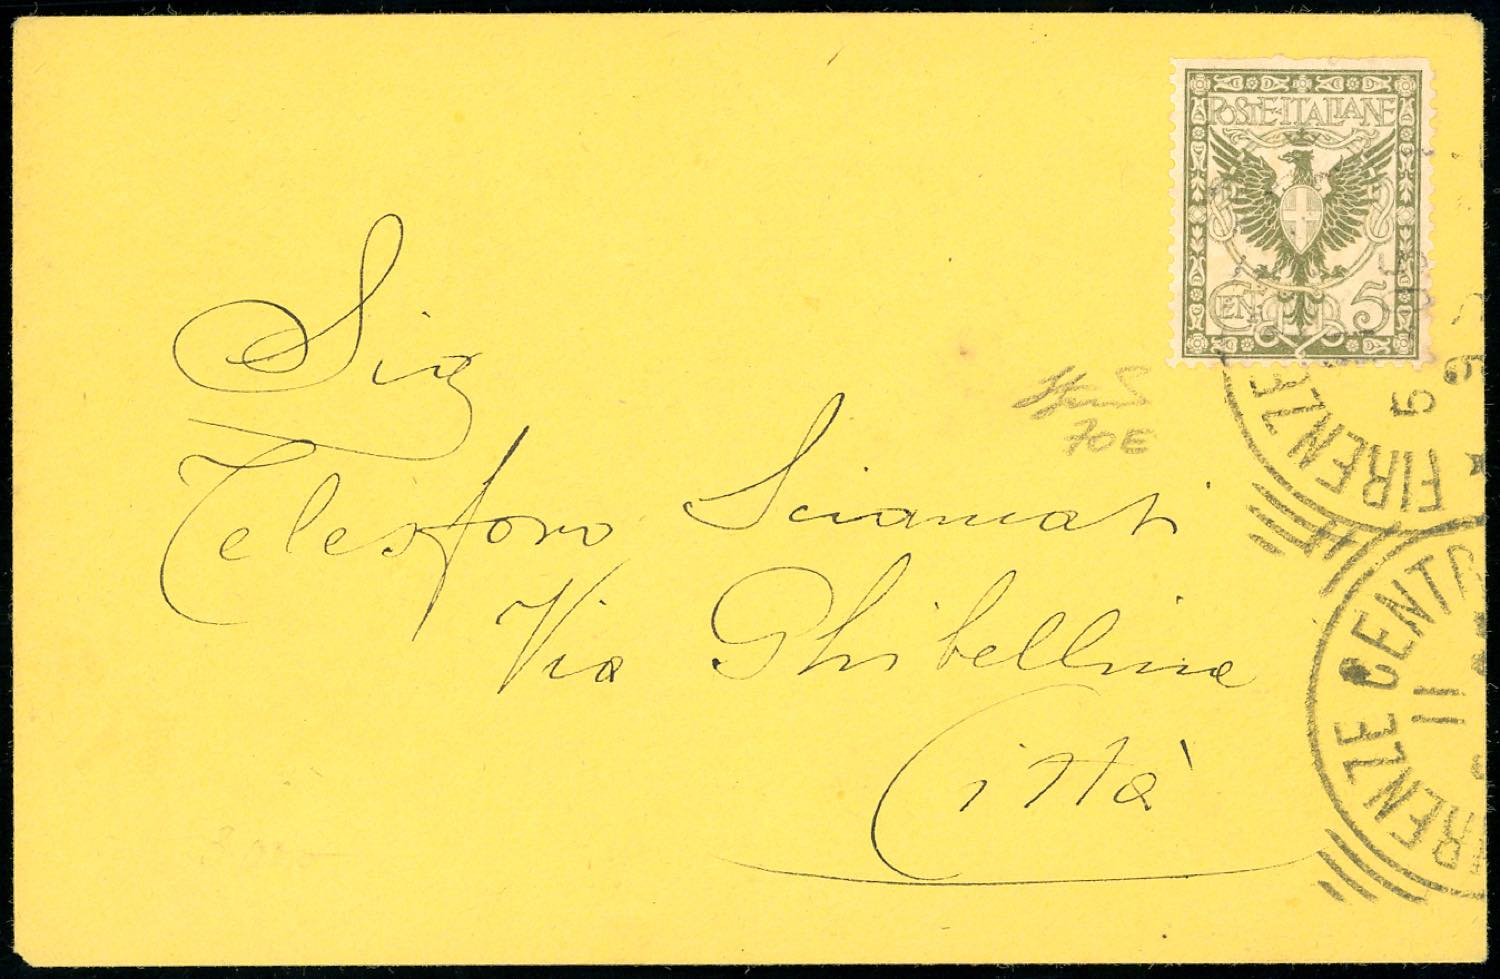 POSTE·ITALIANE
CENT 5
Sig
Telesforo Sciamati
Via Ghibellina
Città
70E
FIRENZE
FIRENZE
FIRENZE CENTR
11